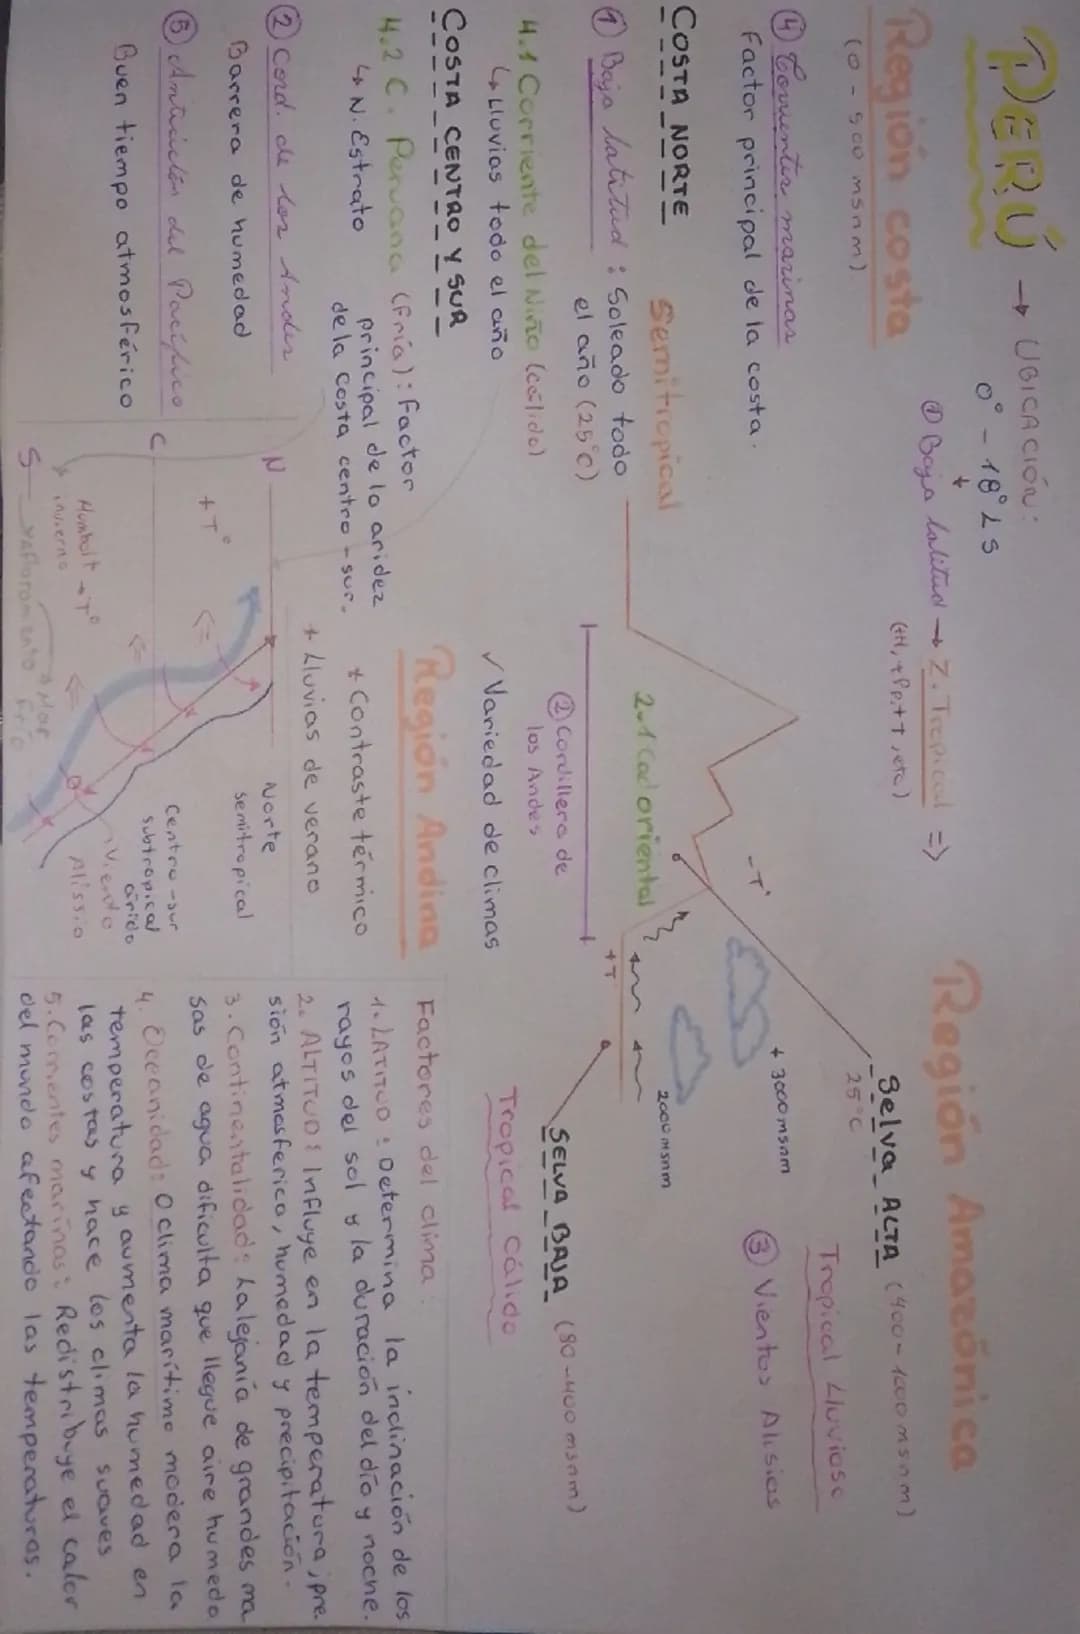 PERÚ → UBICACIÓN:
0° - 18° LS
① Baja latitud → Z. Tropical =>
(+H, +Pp, +T, etc)
Región costa
(0 - 500 msnm)
④ Corrientes marinas
Factor principal de la costa.
COSTA NORTE
Semitropical
① Baja latitud : Soleado todo
el año (25°C)
4.1 Corriente del Niño (cálido)
↳ Lluvias todo el año
COSTA CENTRO Y SUR
4.2 C. Peruana (Fría): Factor
principal de la aridez
de la costa centro - sur.
↳ N. Estrato
② Cord. de los Andes
Barrera de humedad
⑤ Anticiclón del Pacífico
Buen tiempo atmosférico
N
C
S
+T°
Humbolt → -T°
invierno
afloramiento
Mar
frío
Norte
semitropical
Centro - sur
subtropical
árido
Viento
Alissio
2.1 Cad oriental
-T°
+T
② Cordillera de
los Andes
✓ Variedad de climas
Región Andina
+ Contraste térmico
+ Lluvias de verano
Región Amazónica
Selva ALTA (400 - 1000 msnm)
25°C
Tropical Lluvioso
+ 3000 msnm
③ Vientos Alisios
2000 msnm
SELVA BAJA (80 - 400 msnm)
Tropical cálido
Factores del clima:
1. LATITUD : Determina la inclinación de los
rayos del sol y la duración del día y noche.
2. ALTITUD: Influye en la temperatura, pre
sión atmosferica, humedad y precipitación.
3. Continentalidad: La lejanía de grandes ma
sas de agua dificulta que llegue aire humedo
4. Oceanidad: O clima marítimo modera la
temperatura y aumenta la humedad en
las costas y hace los climas suaves
5. Corrientes marinas: Redistribuye el calor
del mundo afectando las temperaturas.